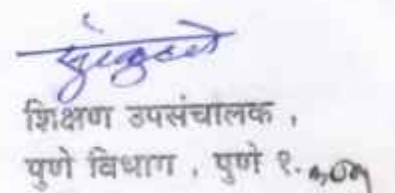 शिक्षण उपसंचालक ,
पुणे विभाग , पुणे १.